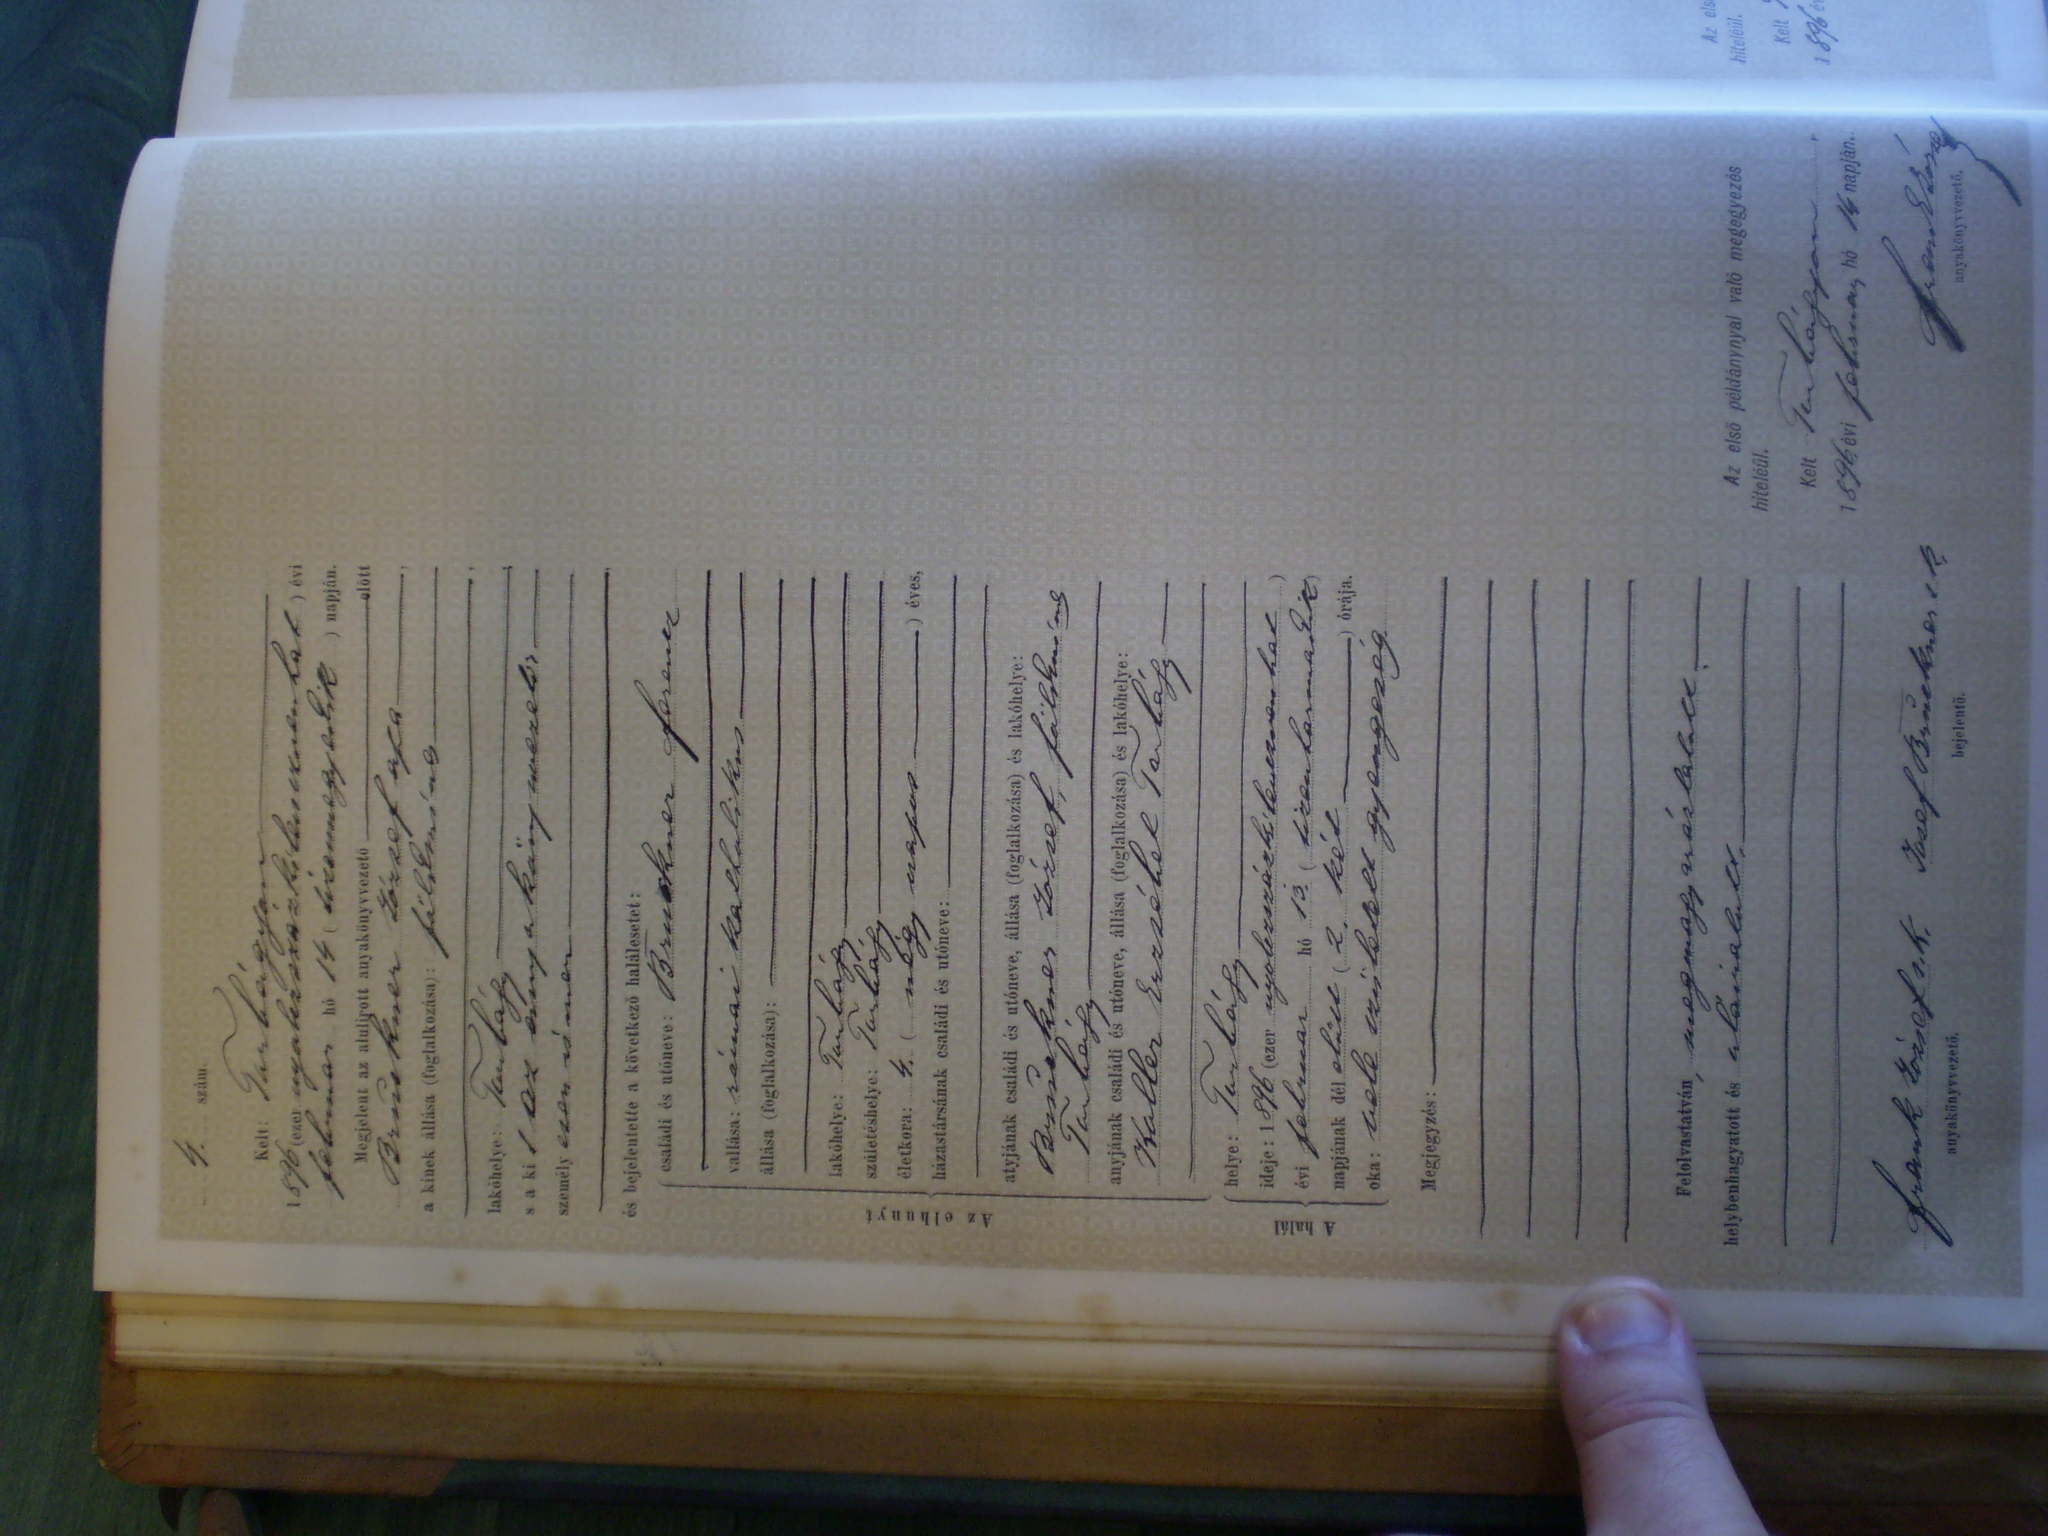 4. szám.
Kelt: Tarhágyon
1896 (ezer nyolczszázkilenczvenhat) évi
február hó 14 (tizennegyedik) napján.
Megjelent az alulirott anyakönyvvezető előtt
Brückner József apa,
a kinek állása (foglalkozása): földmíves,
lakóhelye: Tarhágy,
s a ki az anyakönyvvezető
személyesen ismer
és bejelentette a következő halálesetet:
Az elhunyt
családi és utóneve: Bruckner Ferencz
vallása: római katholikus
állása (foglalkozása):
lakóhelye: Tarhágy
születéshelye: Tarhágy
életkora: 4. (négy napos) éves,
házastársának családi és utóneve:
atyjának családi és utóneve, állása (foglalkozása) és lakóhelye:
Brückner József, földmíves
Tarhágy
anyjának családi és utóneve, állása (foglalkozása) és lakóhelye:
Erzsébet Tarhágy
A halál
helye: Tarhágy
ideje: 1896 (ezer nyolczszázkilenczvenhat)
évi február hó 13. (tizenharmadik)
napjának dél előtt (2. két) órája.
oka: vele született gyengeség
Megjegyzés:
Felolvastatván, megmagyaráztatott
helybenhagyatott és aláiratott.
Frank József s.k.
anyakönyvvezető.
Josef Brückner s.k.
bejelentő.
Az első példánynyal való megegyezés
hiteléül.
Kelt Tarhágyon,
1896 évi február hó 14 napján.
Frank József
anyakönyvvezető.
Az els
hiteléül.
Kelt
1896 év